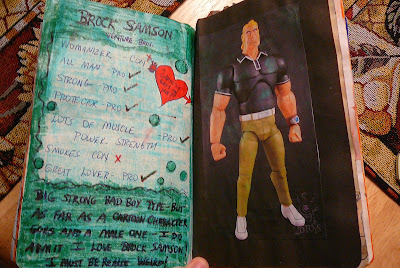 BROCK SAMSON
WOMANIZER CON
ALL MAN PRO ✓
STRONG PRO ✓
PROTECTOR PRO ✓
LOTS OF MUSCLE PRO ✓
POWER STRENGTH
SMOKES CON X
GREAT LOVER - PRO ✓
BIG STRONG BAD BOY TYPE - BUT
AS FAR AS A CARTOON CHARACTER
GOES AND A MALE ONE - I DO
ADMIT I LOVE BROCK SAMSON!
I MUST BE REALLY WEIRD!